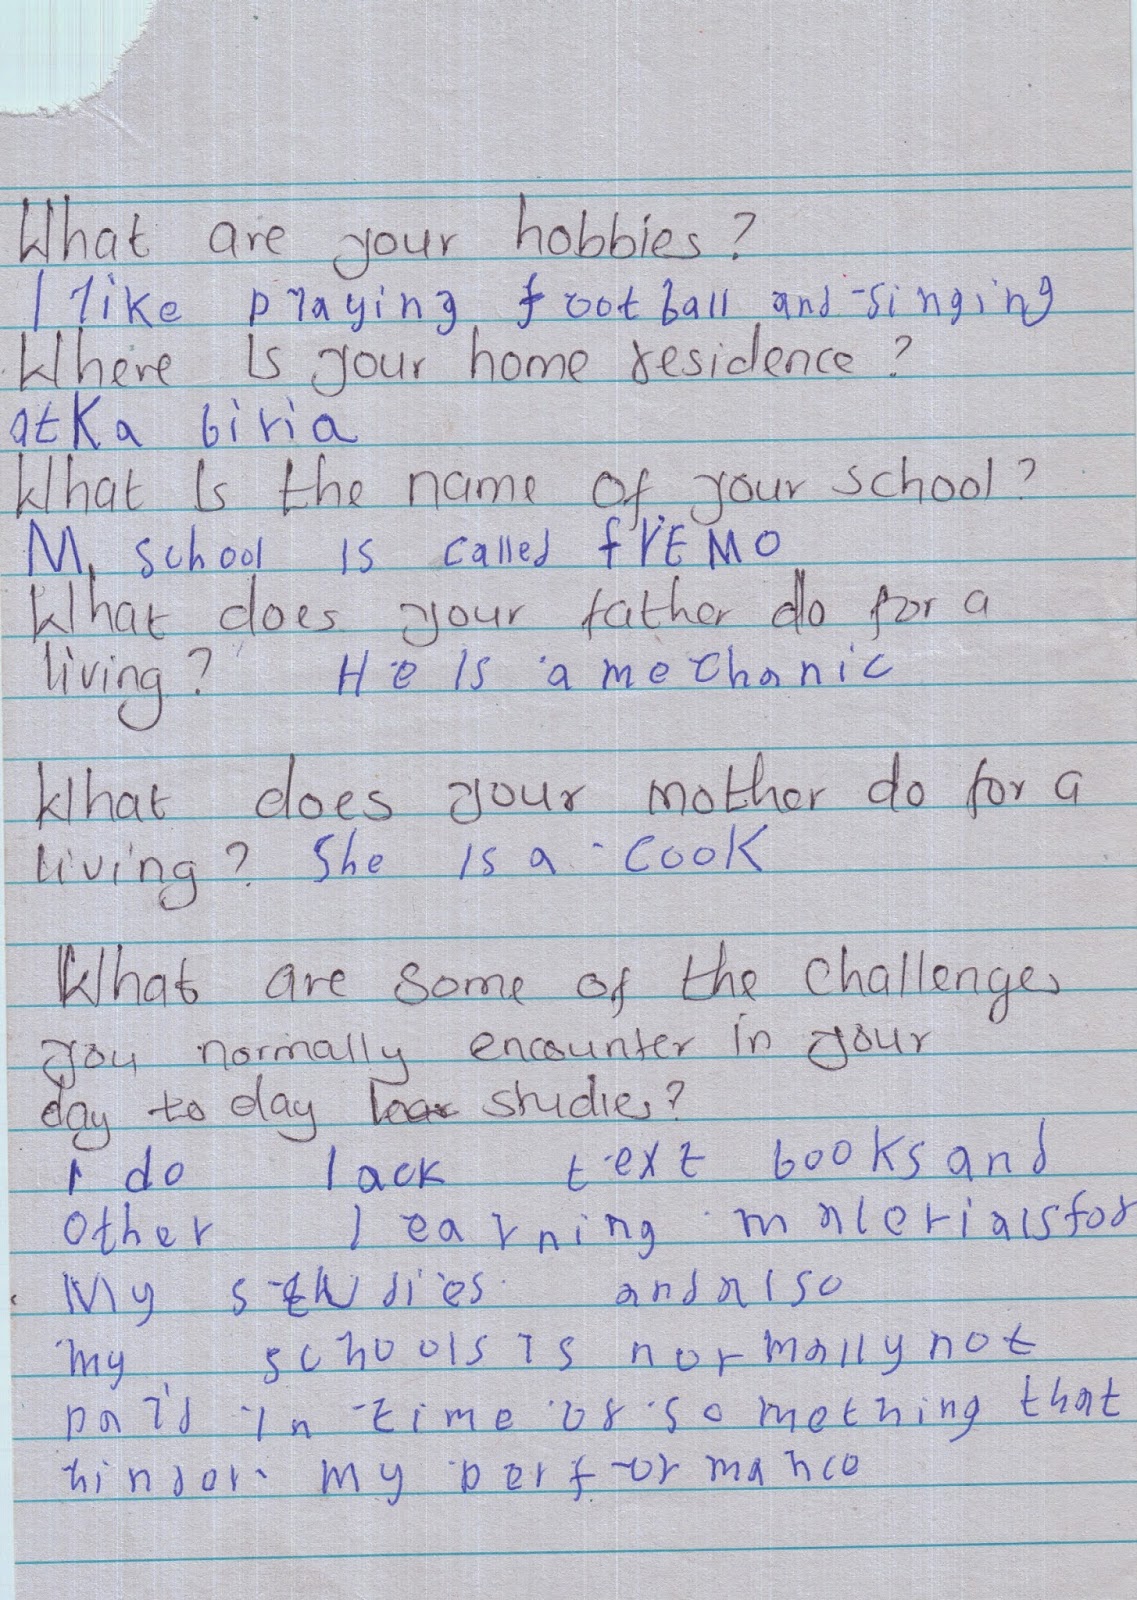 What are your hobbies?
I like playing football and singing
Where Is your home residence?
at Ka biria
What Is the name of your school?
M, school IS called frEMO
What does your father do for a
living? He Is a mechanic
What does your mother do for a
living? She Is a cook
What are some of the challenges
you normally encounter in your
day to day studies?
I do lack text books and
other learning materials for
My studies and also
my schools is normally not
paid in time or something that
hinder my performance